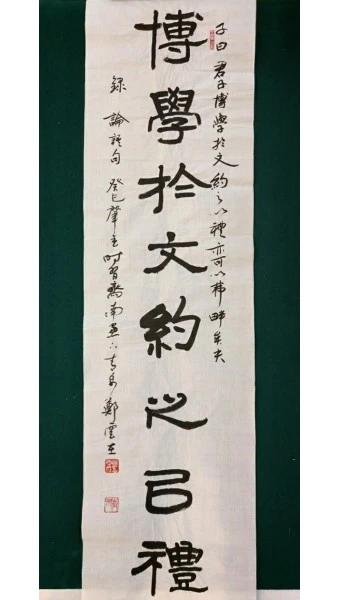 子曰君子博學於文約之以禮亦可以弗畔矣夫
博學於文約之㠯禮
錄 論語句 癸巳肇 時習齋南 鄭 在